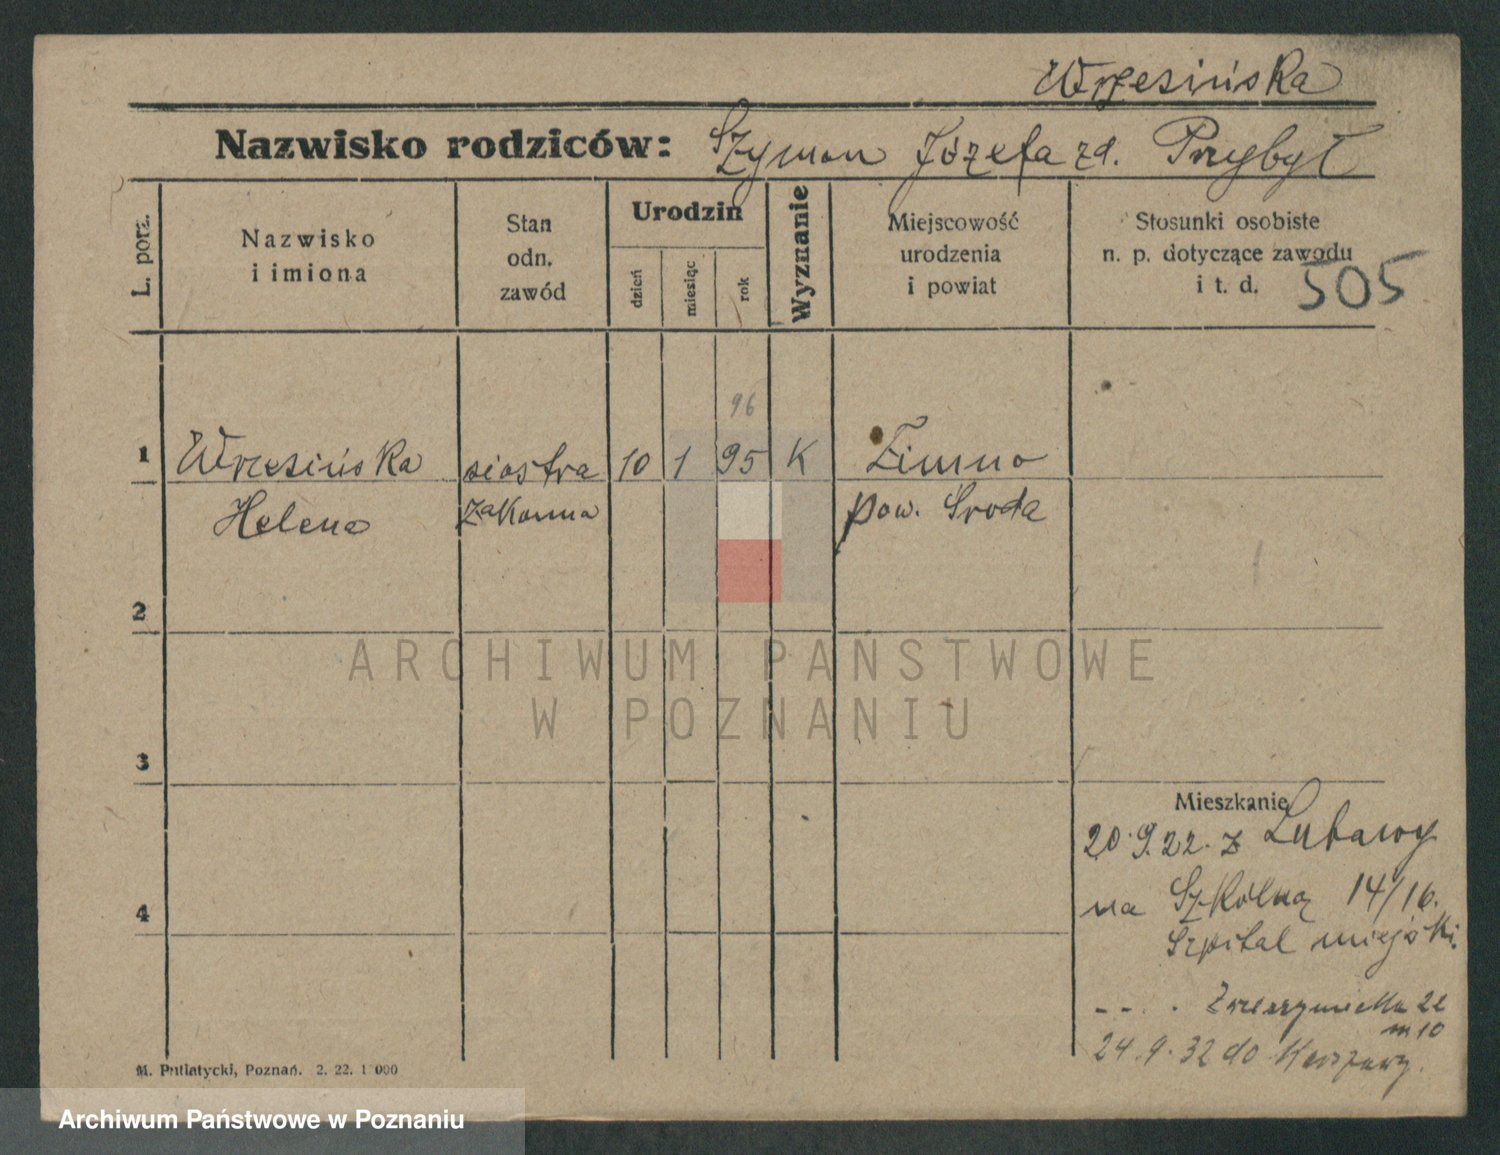 Wrzesińska
Nazwisko rodziców: Szymon Józefa zd. Przybył
L. porz.
Nazwisko
i imiona
Stan
odn.
zawód
Urodzin
dzień
miesiąc
rok
Wyznanie
Miejscowość
urodzenia
i powiat
Stosunki osobiste
n. p. dotyczące zawodu
i t. d.
505
96
1 Wrzesińska siostra 10 1 95 K Zimno
Helena zakonna pow. Środa
2
ARCHIWUM PAŃSTWOWE
W POZNANIU
3
Mieszkanie
20.9.22. z Lubawy
na Szkolną 14/16.
Szpital miejski.
4
---. Zwierzyniecka 22
m 10
24.9.32 do
M. Putiatycki, Poznań. 2. 22. 1 000
Archiwum Państwowe w Poznaniu